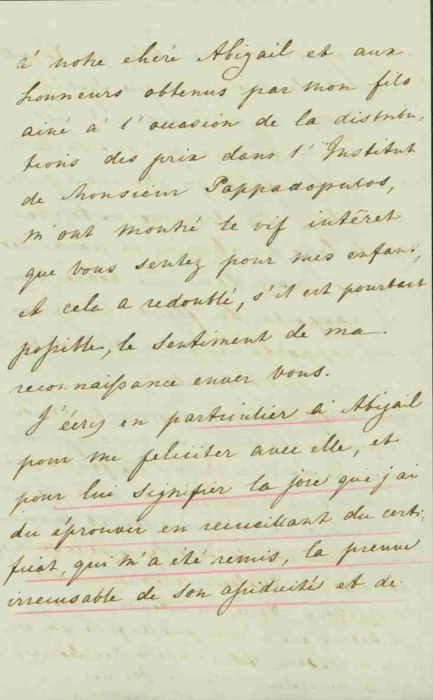 à notre chéré Abigail et aux
honneurs obtenus par mon fils
ainé à l'occasion de la distribu-
tions des prix dans l'Institut
de Monsieur Pappadopulos,
m'ont montré le vif intêret
que vous sentez pour mes enfans,
et cela a redoublé, s'il est pourtant
possible, le sentiment de ma
reconnaissance enver vous.
J'écris en particulier à Abigail
pour me feliciter avec elle, et
pour lui signifier la joie que j'ai
du éprouver en recueillant du certi-
ficat, qui m'a été remis, la preuve
irrecusable de son assiduité et de